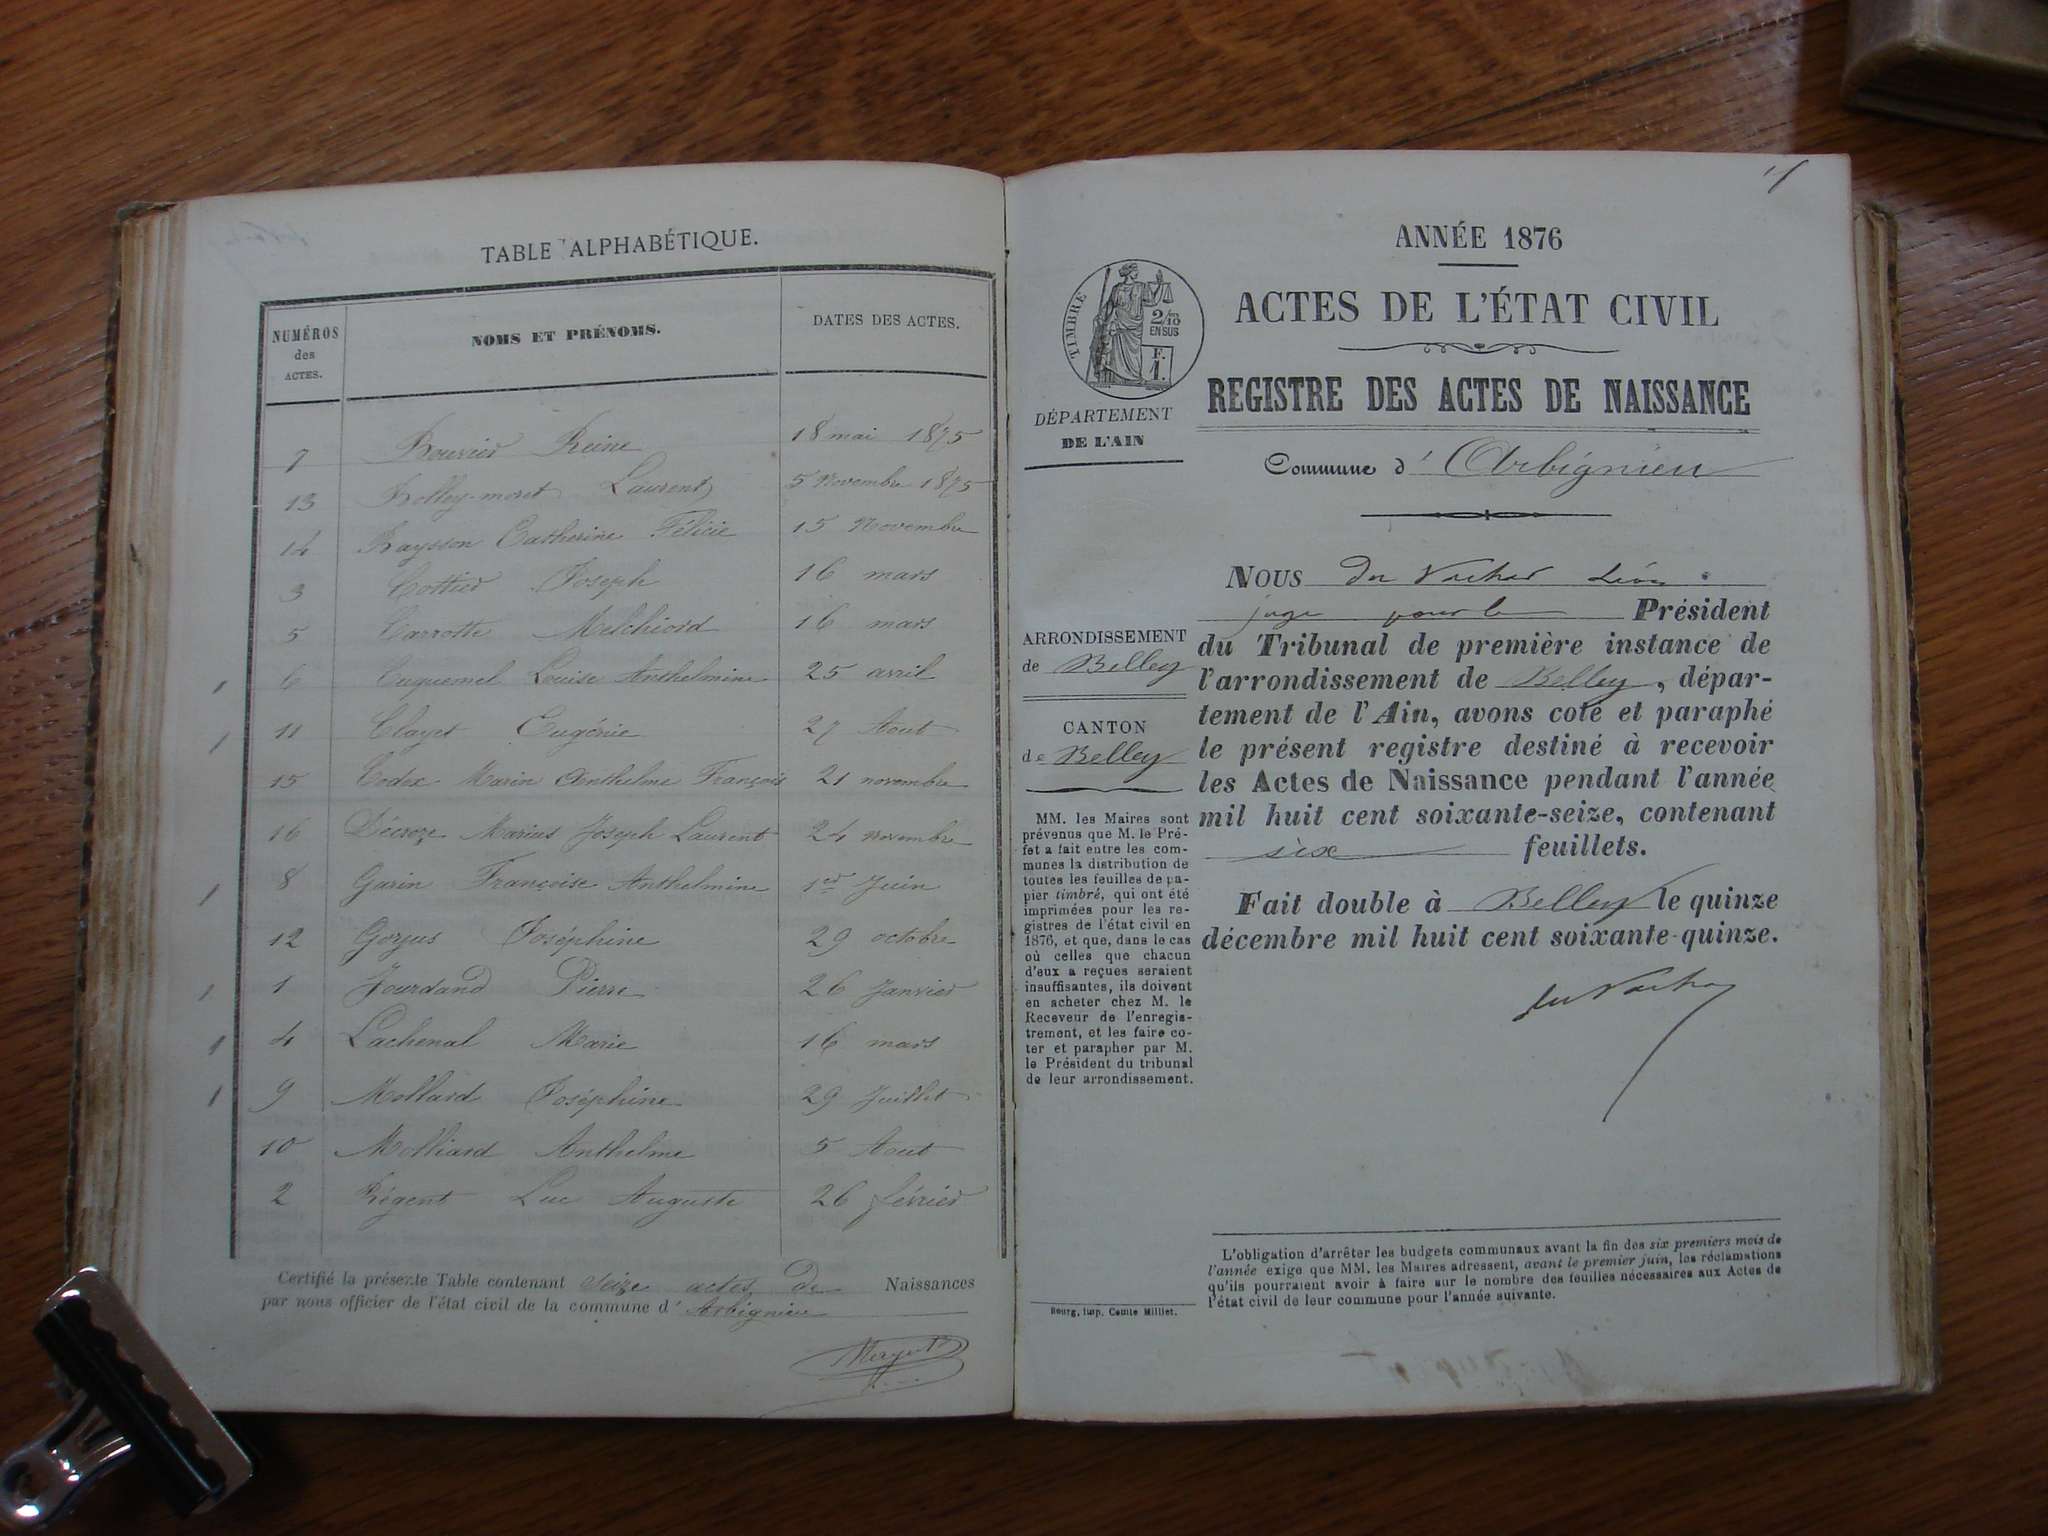 TABLE ALPHABÉTIQUE.
NUMÉROS des ACTES. NOMS ET PRÉNOMS. DATES DES ACTES.
7 Bouvier Reine 18 mai 1875
13 Bolley-moret Laurent 5 Novembre 1875
14 Baysson Catherine Félicie 15 Novembre
3 Cottier Joseph 16 mars
5 Carrotte Melchiord 16 mars
6 Cuquemel Louise Anthelmine 25 avril
11 Clayet Eugénie 27 Aout
15 Codex Marin Anthelme François 21 novembre
16 Décroze Marius Joseph Laurent 24 novembre
8 Garin Françoise Anthelmine 1er Juin
12 Gorjus Joséphine 29 octobre
1 Jourdand Pierre 26 Janvier
4 Lachenal Marie 16 mars
9 Mollard Joséphine 29 Juillet
10 Molliard Anthelme 5 Aout
2 Régent Luc Auguste 26 février
Certifié la présente Table contenant Seize actes de Naissances
par nous officier de l'état civil de la commune d' Arbignieu
ANNÉE 1876
TIMBRE 2/10 EN SUS F. 1.
ACTES DE L'ÉTAT CIVIL
REGISTRE DES ACTES DE NAISSANCE
DÉPARTEMENT
DE L'AIN
Commune d' Arbignieu
ARRONDISSEMENT
de Belley
CANTON
de Belley
MM. les Maires sont
prévenus que M. le Pré-
fet a fait entre les com-
munes la distribution de
toutes les feuilles de pa-
pier timbré, qui ont été
imprimées pour les re-
gistres de l'état civil en
1876, et que, dans le cas
où celles que chacun
d'eux a reçues seraient
insuffisantes, ils doivent
en acheter chez M. le
Receveur de l'enregis-
trement, et les faire co-
ter et parapher par M.
le Président du tribunal
de leur arrondissement.
NOUS du Vachat Léon
juge pour le Président
du Tribunal de première instance de
l'arrondissement de Belley, dépar-
tement de l'Ain, avons coté et paraphé
le présent registre destiné à recevoir
les Actes de Naissance pendant l'année
mil huit cent soixante-seize, contenant
six feuillets.
Fait double à Belley le quinze
décembre mil huit cent soixante-quinze.
du Vachat
L'obligation d'arrêter les budgets communaux avant la fin des six premiers mois de
l'année exige que MM. les Maires adressent, avant le premier juin, les réclamations
qu'ils pourraient avoir à faire sur le nombre des feuilles nécessaires aux Actes de
l'état civil de leur commune pour l'année suivante.
Bourg, imp. Comte Milliet.